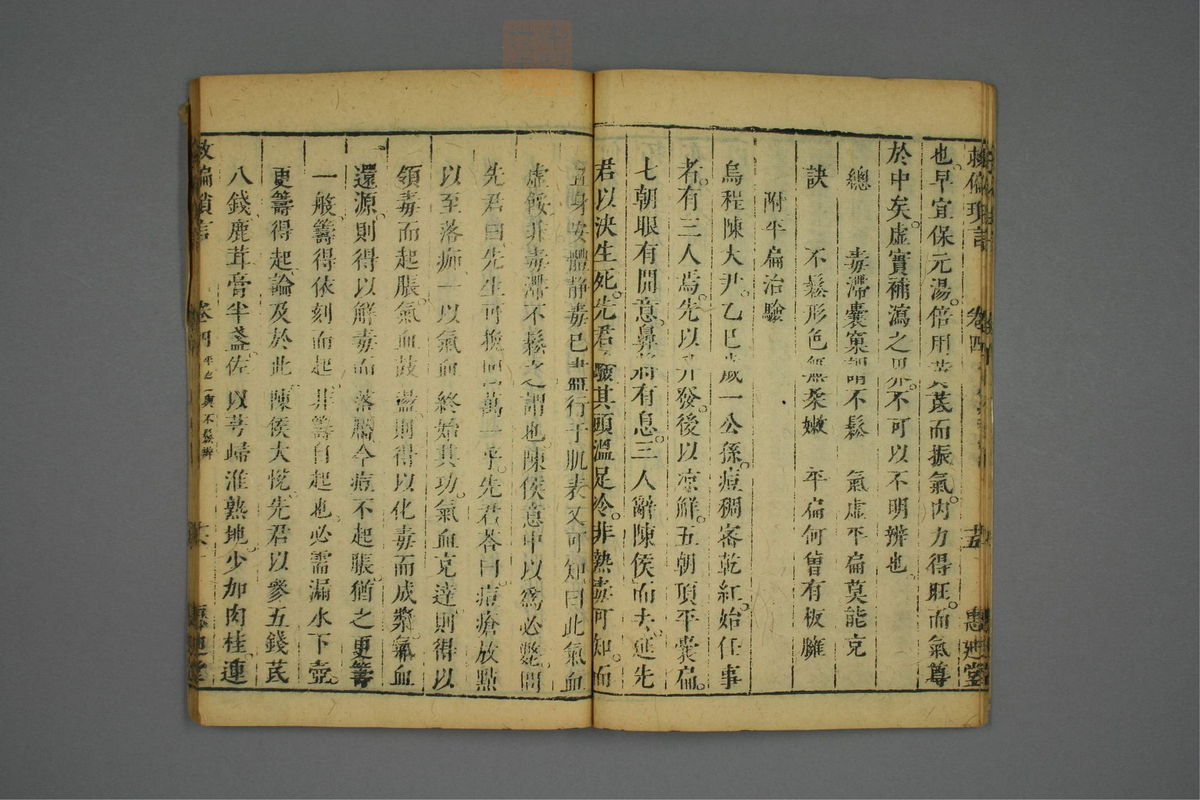 救偏瑣言 卷四 惠迪堂
也。早宜保元湯。倍用黃芪而振氣。內力得旺。而氣尊
於中矣。虛實補瀉之界。不可以不明辨也。
總 毒滯囊窠謂不鬆 氣虛平扁莫能克
訣 不鬆形色無柔嫩 平扁何曾有板臃
附平扁治驗
烏程陳大尹。乙巳歲一公孫。痘稠密乾紅。始任事
者。有三人焉。先以升發。後以凉鮮。五朝頂平囊扁。
七朝眼有開意。鼻將有息。三人辭陳侯而去。延先
君以決生死。先君驗其頭溫足冷。非熱毒可知。而
體靜毒已 行于肌表又可知曰此氣血
虛餒并毒滯不鬆之謂也。陳侯意中以為必斃。問
先君曰。先生可挽回萬一乎。先君答曰。痘瘡放點
以至落痂。一以氣血終始其功。氣血克達。則得以
領毒而起脹。氣血鼓盪。則得以化毒而成漿。氣血
還源。則得以解毒而落靨。今痘不起脹。猶之更籌
一般籌得依刻而起。非籌自起也。必需漏水下壺。
更籌得起。論及於此。陳侯大悅。先君以參五錢芪
八錢鹿茸膏半盞佐以芎歸淮熟地。少加肉桂連
救偏瑣言 卷四 平扁與不鬆辨 惠迪堂